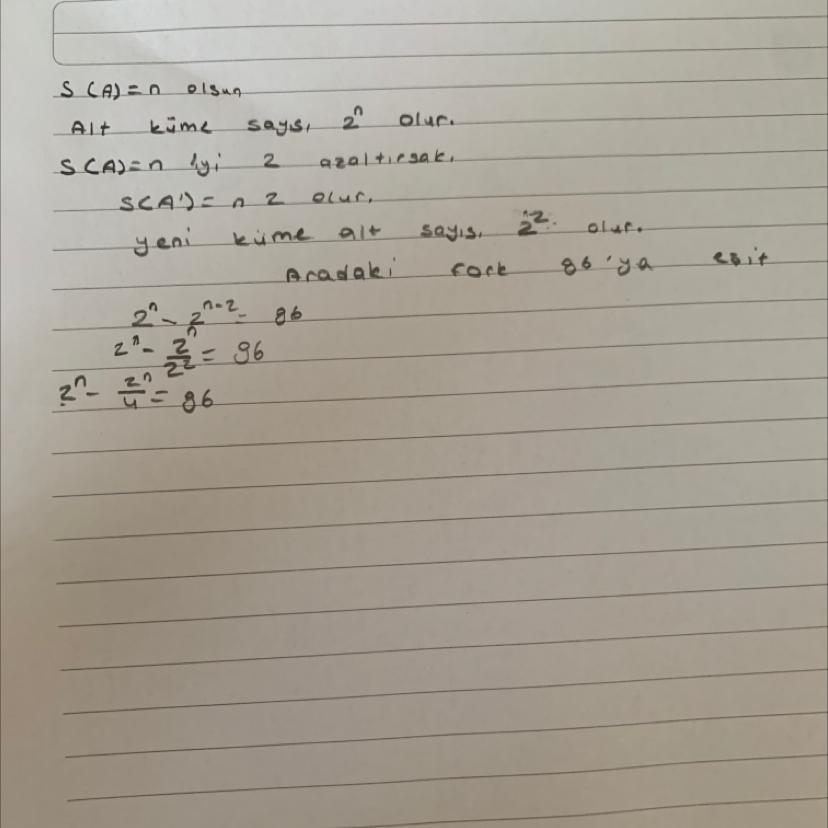 S(A)=n olsun
Alt küme sayısı 2ⁿ olur.
S(A)=n 'yi 2 azaltırsak.
S(A')= n 2 olur.
yeni küme alt sayısı olur.
Aradaki fark 96'ya eşit
2ⁿ - 2ⁿ⁻² = 96
2ⁿ - 2ⁿ/2² = 96
2ⁿ - 2ⁿ/4 = 96